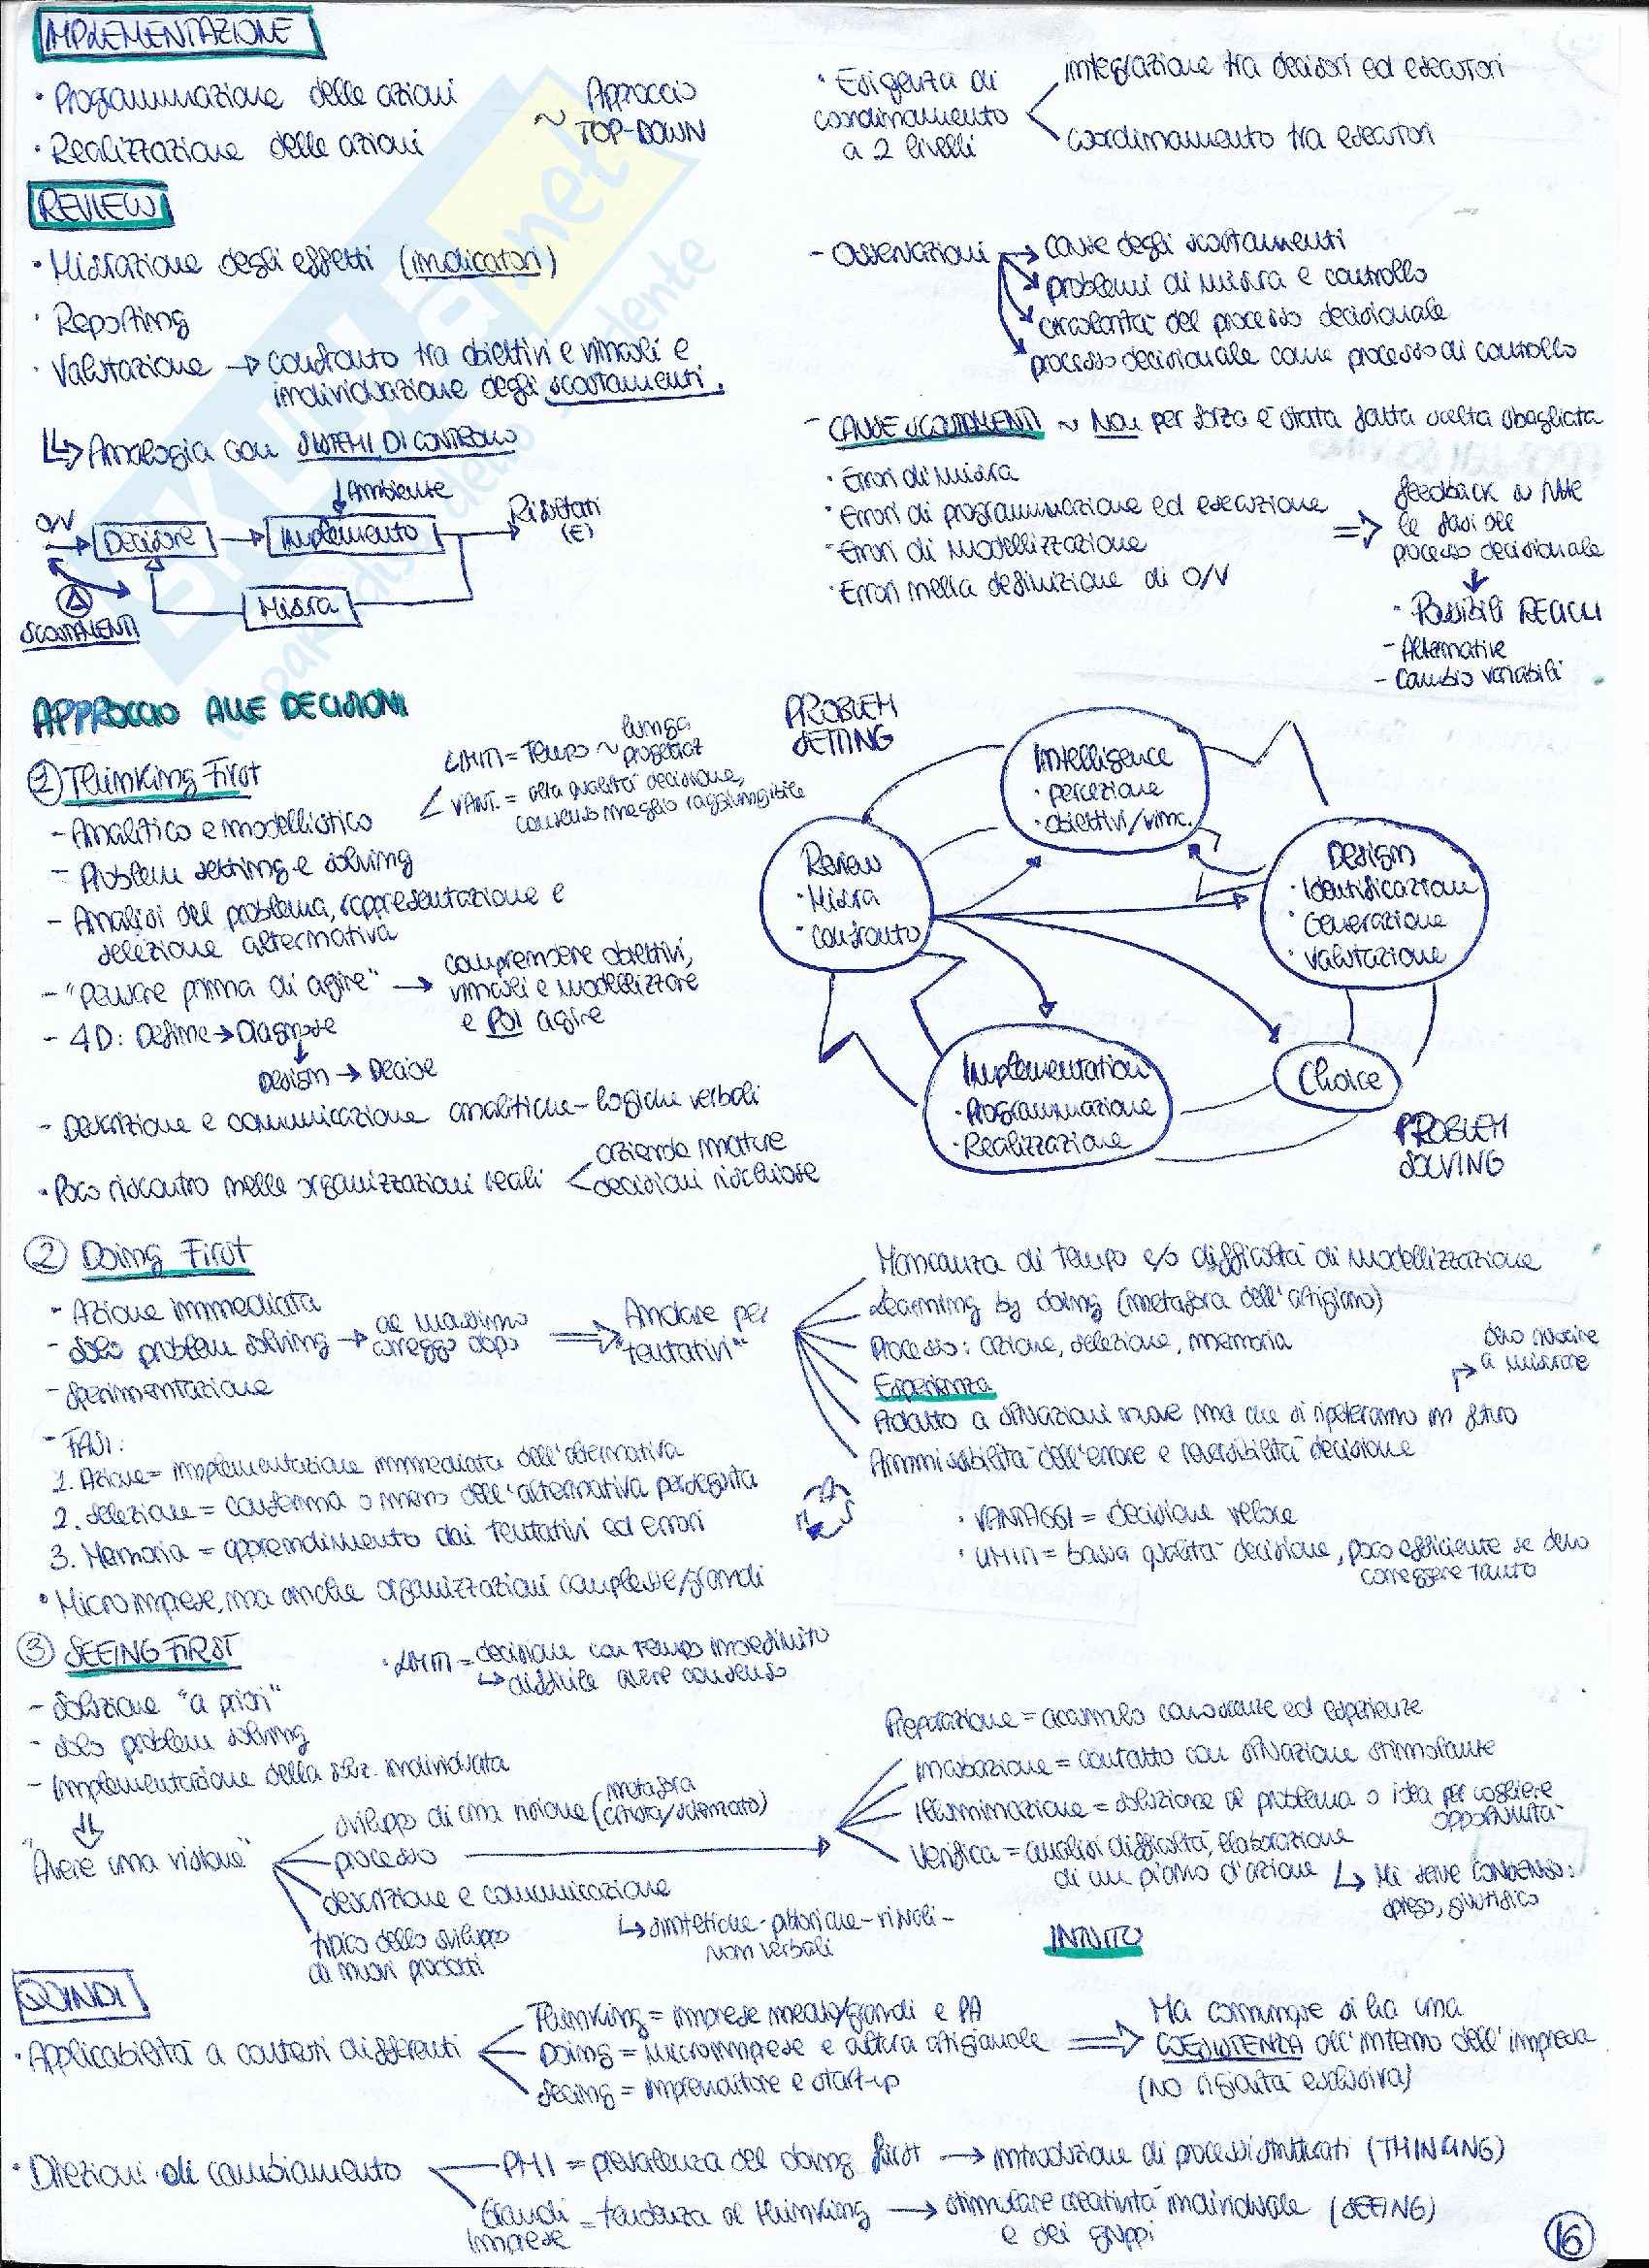 IMPLEMENTAZIONE
• Programmazione delle azioni
• Realizzazione delle azioni
~ Approccio
TOP-DOWN
• Esigenza di
coordinamento
a 2 livelli
integrazione tra decisori ed esecutori
coordinamento tra esecutori
REVIEW
• Misurazione degli effetti (indicatori)
• Reporting
• Valutazione → confronto tra obiettivi e vincoli e
individuazione degli scostamenti.
↳ Analogia con SISTEMI DI CONTROLLO
Ambiente
O/V
Decisore
Implemento
Risultati
(E)
Misura
Δ
SCOSTAMENTI
- Osservazioni
→ cause degli scostamenti
problemi di misura e controllo
circolarità del processo decisionale
processo decisionale come processo di controllo
- CAUSE SCOSTAMENTI ~ Non per forza è stata fatta scelta sbagliata
• Errori di misura
• Errori di programmazione ed esecuzione
• Errori di modellizzazione
• Errori nella definizione di O/V
⇒ feedback su tutte
le fasi del
processo decisionale
• Possibili RICICLI
- Alternative
- Cambio variabili
APPROCCIO ALLE DECISIONI
① Thinking First
LIMITI = Tempo ~ lunga
VANT. = alta qualità decisione,
consenso meglio raggiungibile
- Analitico e modellistico
- Problem setting e solving
- Analisi del problema, rappresentazione e
selezione alternativa
- "Pensare prima di agire" → comprendere obiettivi,
vincoli e modellizzare
e POI agire
- 4D: Define → Diagnose
Design → Decide
- Descrizione e comunicazione analitiche-logiche verbali
• Poco riscontro nelle organizzazioni reali
aziende mature
decisioni rischiose
PROBLEM
SETTING
Intelligence
• percezione
• obiettivi/vinc.
Review
• Misura
• Confronto
Design
• Identificazione
• Generazione
• Valutazione
Implementation
• Programmazione
• Realizzazione
Choice
PROBLEM
SOLVING
② Doing First
- Azione immediata
- Solo problem solving → al massimo
correggo dopo
- Sperimentazione
⇒ Andare per
"tentativi"
Mancanza di tempo e/o difficoltà di modellizzazione
Learning by doing (metafora dell'artigiano)
Processo: azione, selezione, memoria
Esperienza
Adatto a situazioni nuove ma che si ripeteranno in futuro
Ammissibilità dell'errore e reversibilità decisione
devo riuscire
a misurare
- FASI:
1. Azione = implementazione immediata dell'alternativa
2. Selezione = conferma o meno dell'alternativa perseguita
3. Memoria = apprendimento dai tentativi ed errori
• Microimprese, ma anche organizzazioni complesse/grandi
A
M S
• VANTAGGI = decisione veloce
• LIMITI = bassa qualità decisione, poco efficiente se devo
correggere tanto
③ SEEING FIRST
• LIMITI = decisione con tempo indefinito
↳ difficile avere consenso
- Soluzione "a priori"
- Solo problem solving
- Implementazione della soluz. individuata
"Avere una visione"
sviluppo di una visione (metafora
artista/scienziato)
processo
descrizione e comunicazione
↳ sintetiche-pittoriche-visuali-
non verbali
tipico dello sviluppo
di nuovi prodotti
Preparazione = accumulo conoscenze ed esperienze
Incubazione = contatto con situazione stimolante
Illuminazione = soluzione al problema o idea per cogliere
opportunità
Verifica = analisi difficoltà, elaborazione
di un piano d'azione
↳ Mi serve CONSENSO:
spiego, giustifico
INTUITO
QUINDI
• Applicabilità a contesti differenti
Thinking = imprese medio/grandi e PA
Doing = microimprese e cultura artigianale
Seeing = imprenditore e start-up
⇒ Ma comunque si ha una
COESISTENZA all'interno dell'impresa
(NO rigidità esclusiva)
• Direzioni di cambiamento
PMI = prevalenza del doing first → introduzione di processi strutturati (THINKING)
Grandi
imprese = tendenza al thinking → stimolare creatività individuale (SEEING)
e dei gruppi
16